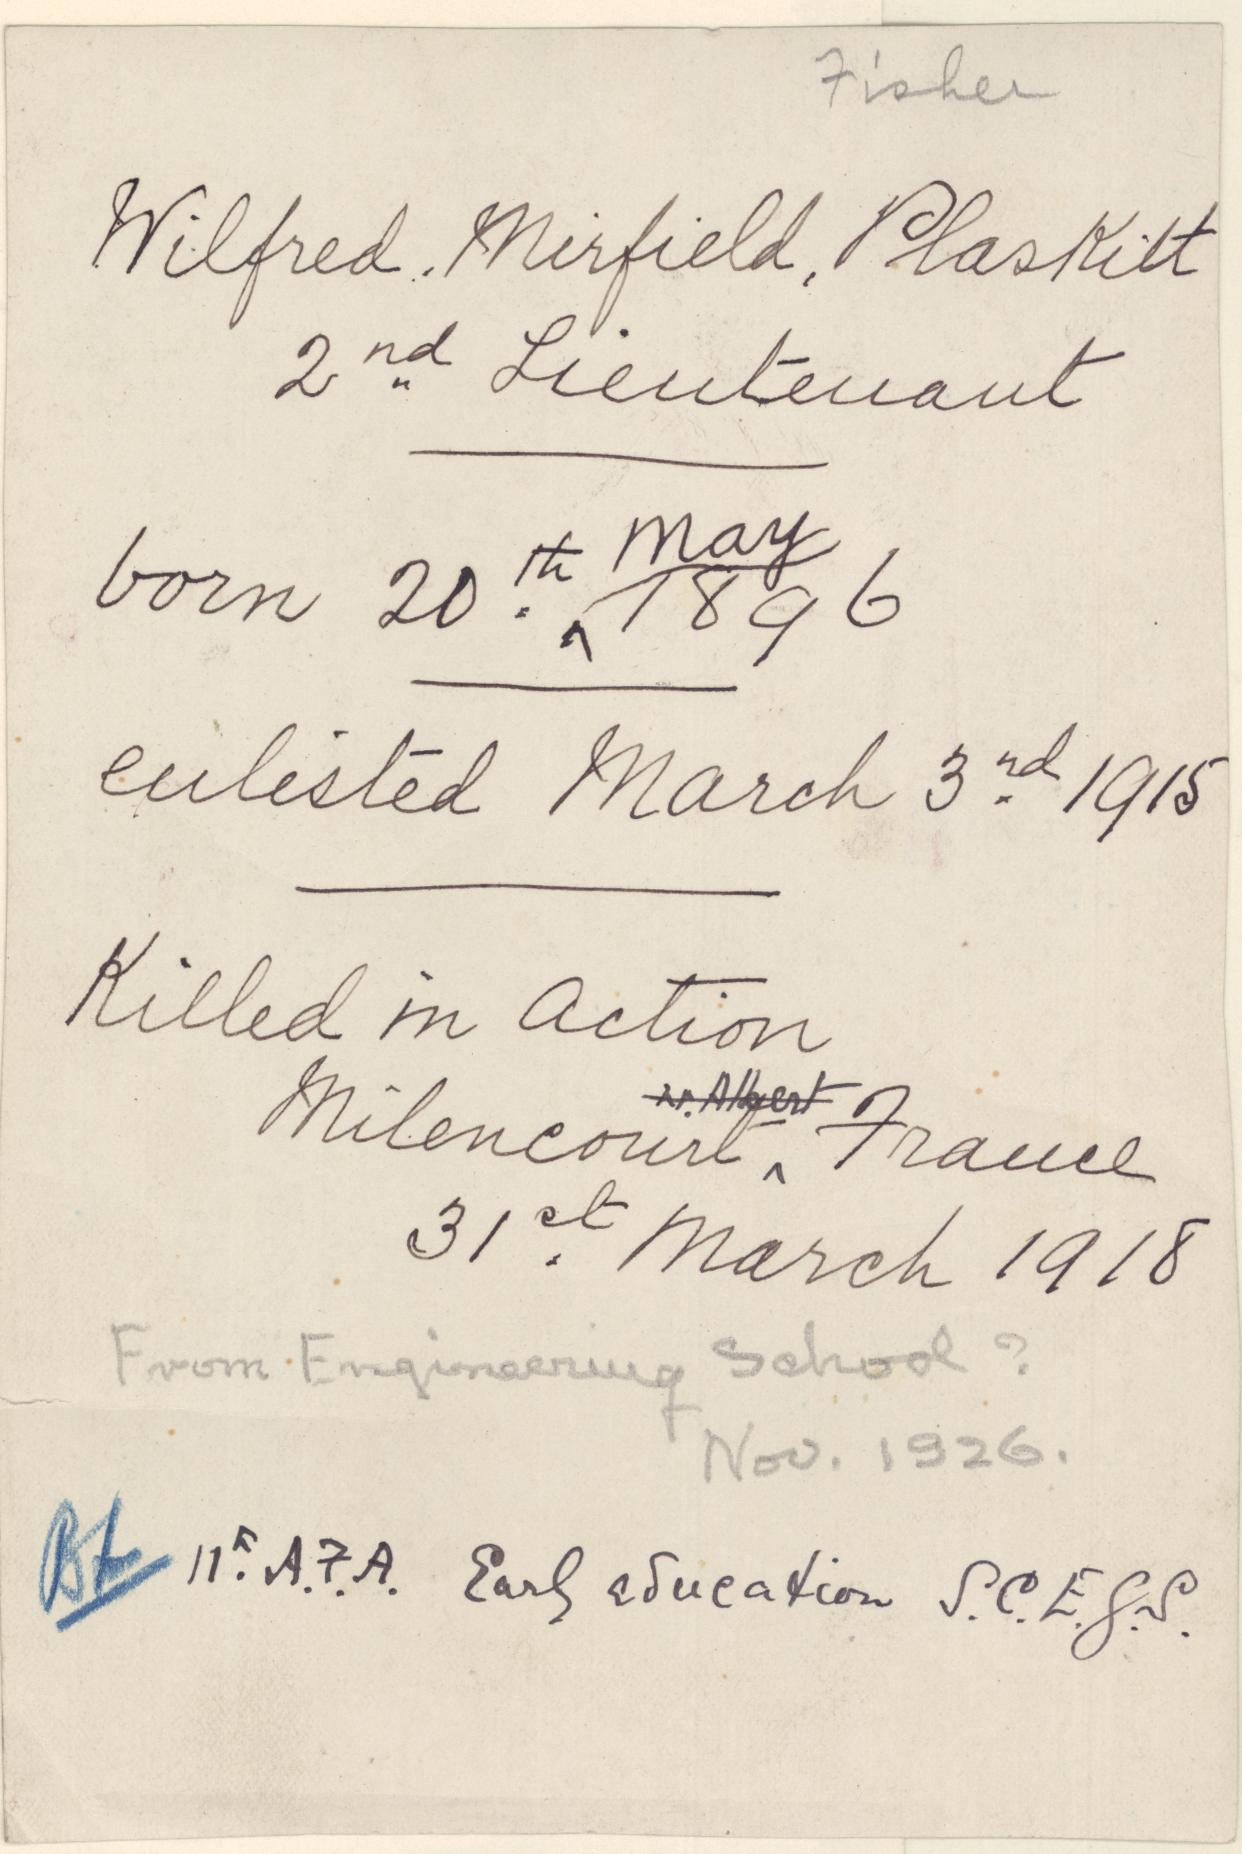 Fisher
Wilfred. Mirfield, Plaskitt
2nd Lieutenant
born 20th May 1896
enlisted March 3rd 1915
Killed in Action
Milencourt nr. Albert France
31st March 1918
From Engineering School?
Nov. 1926.
11th A.F.A. Early education S.C.E.G.S.